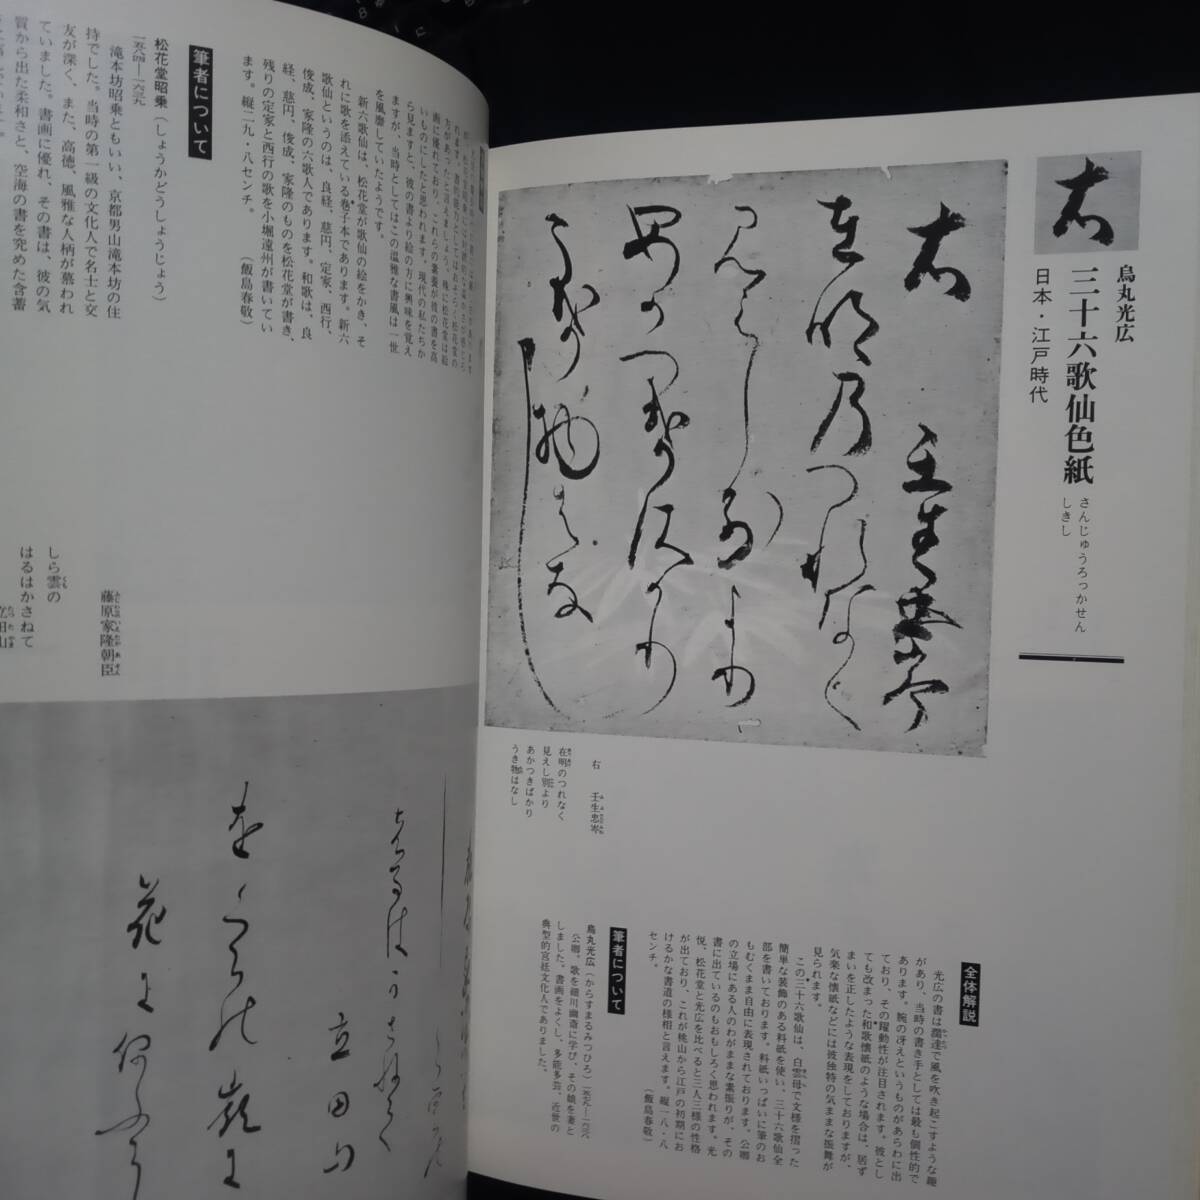 烏丸光広
三十六歌仙色紙
さんじゅうろっかせん
しきし
日本・江戸時代
右　壬生忠岑
在明のつれなく
見えし別より
あかつきばかり
うき物はなし
全体解説
光広の書は闊達で風を吹き起こすような趣
があり、当時の書き手としては最も個性的で
あります。腕の冴えというものがあらわに出
ており、その躍動性が注目されます。彼とし
ても改まった和歌懐紙のような場合は、居ず
まいを正したような表現をしておりますが、
気楽な懐紙などには彼独特の気ままな振舞が
見られます。
この三十六歌仙は、白雲母で文様を摺った
簡単な装飾のある料紙を使い、三十六歌仙全
部を書いております。料紙いっぱいに筆のお
もむくまま自由に表現されております。公卿
の立場にある人のわがままな素振りが、その
書に出ているのもおもしろく思われます。光
悦、松花堂と光広を比べると三人三様の性格
が出ており、これが桃山から江戸の初期にお
けるかな書道の様相と言えます。縦一八・八
センチ。
（飯島春敬）
筆者について
烏丸光広（からすまるみつひろ）一五七九―一六三八
公卿。歌を細川幽斎に学び、その娘を妻と
しました。書画をよくし、多能多芸、近世の
典型的宮廷文化人でありました。
画に優れており、これらの素養が彼の書を高
いものにしたと思われます。現代の私たちか
ら見ますと、彼の書より絵の方に興味を覚え
ますが、当時としてはこの温雅な書風は一世
を風靡していたようです。
新六歌仙は、松花堂が歌仙の絵をかき、そ
れに歌を添えている巻子本であります。新六
歌仙というのは、良経、慈円、定家、西行、
俊成、家隆の六歌人であります。和歌は、良
経、慈円、俊成、家隆のものを松花堂が書き、
残りの定家と西行の歌を小堀遠州が書いてい
ます。縦二九・八センチ。
（飯島春敬）
筆者について
松花堂昭乗（しょうかどうしょうじょう）
一五八四―一六三九
滝本坊昭乗ともいい、京都男山滝本坊の住
持でした。当時の第一級の文化人で名士と交
友が深く、また、高徳、風雅な人柄が慕われ
ていました。書画に優れ、その書は、彼の気
質から出た柔和さと、空海の書を究めた含蓄
藤原家隆朝臣
しら雲の
はるはかさねて
立田山